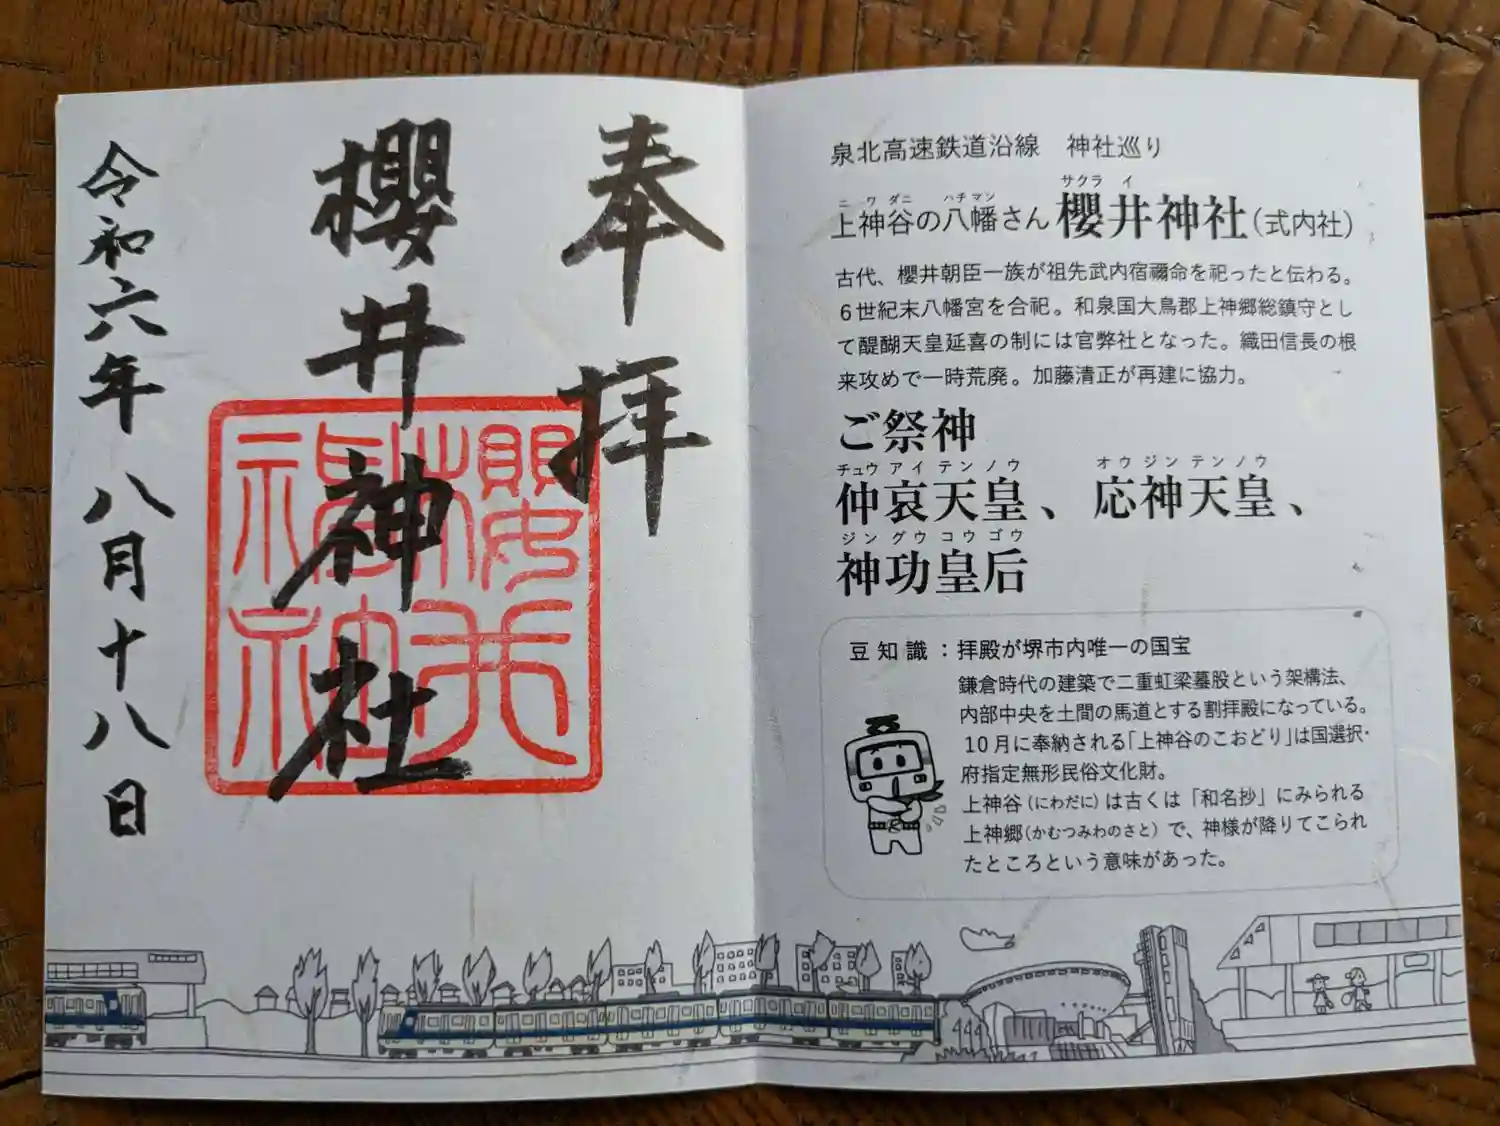 奉拝
櫻井神社
令和六年八月十八日
櫻井
神社
泉北高速鉄道沿線 神社巡り
ニワダニ ハチマン サクライ
上神谷の八幡さん 櫻井神社(式内社)
古代、櫻井朝臣一族が祖先武内宿禰命を祀ったと伝わる。
6世紀末八幡宮を合祀。和泉国大鳥郡上神郷総鎮守とし
て醍醐天皇延喜の制には官弊社となった。織田信長の根
来攻めで一時荒廃。加藤清正が再建に協力。
ご祭神
チュウアイテンノウ オウジンテンノウ
仲哀天皇、応神天皇、
ジングウコウゴウ
神功皇后
豆知識:拝殿が堺市内唯一の国宝
鎌倉時代の建築で二重虹梁蟇股という架構法、
内部中央を土間の馬道とする割拝殿になっている。
10月に奉納される「上神谷のこおどり」は国選択・
府指定無形民俗文化財。
上神谷(にわだに)は古くは「和名抄」にみられる
上神郷(かむつみわのさと)で、神様が降りてこられ
たところという意味があった。